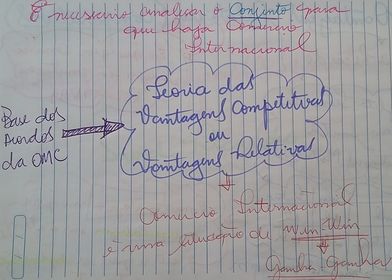 É necessário analisar o Conjunto para
que haja Comércio
Internacional
Teoria das
Vantagens Competitivas
ou
Vantagens Relativas
Base dos
Acordos
da OMC
Comércio Internacional
é uma situação de Win Win
Ganha Ganha